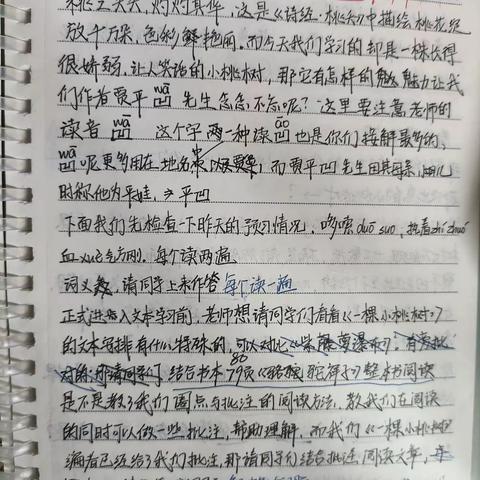 桃之夭夭,灼灼其华,这是《诗经·桃夭》中描绘桃花绽
放千万朵,色彩鲜艳丽。而今天我们学习的却是一株长得
很娇弱,让人笑话的小桃树,那它有怎样的魅力让我
们作者贾平凹wā先生念念不忘呢?这里要注意老师的
读音 凹wā 这个字两种读 凹āo也是你们接触最多的,
凹wā呢更多用在地名中 而贾平凹先生因其母亲
时称他为平娃,→平凹
下面我们先检查一下昨天的预习情况,哆嗦 duō suo,执着zhí zhuó
血xuè气方刚,每个读两遍
词义,请同学上来作答 每个读一遍
正式进入文本学习前,老师想请同学们看看《一棵小桃树》
的文本编排有什么特殊的,可以对比《紫藤萝瀑布》,有旁批
对的,那请同学们结合书本79页《骆驼祥子》整本书阅读
是不是教了我们圈点与批注的阅读方法,教我们在阅读
的同时可以做一些批注,帮助理解,而我们《一棵小桃树》
编者已经给了我们批注,那请同学们结合批注,阅读文章,